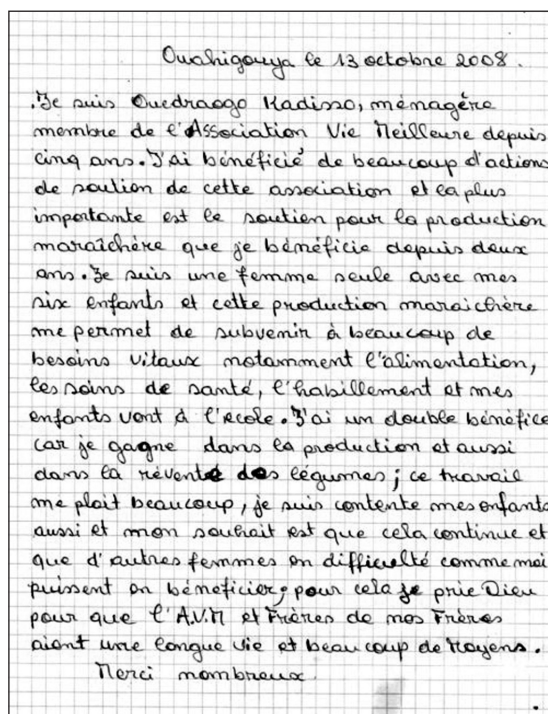 Ouahigouya le 13 octobre 2008.
Je suis Ouedraogo Kadisso, ménagère
membre de l'Association Vie Meilleure depuis
cinq ans. J'ai bénéficié de beaucoup d'actions
de soutien de cette association et la plus
importante est le soutien pour la production
maraîchère que je bénéficie depuis deux
ans. Je suis une femme seule avec mes
six enfants et cette production maraichère
me permet de subvenir à beaucoup de
besoins vitaux notamment l'alimentation,
les soins de santé, l'habillement et mes
enfants vont à l'école. J'ai un double bénéfice
car je gagne dans la production et aussi
dans la révente des légumes; ce travail
me plait beaucoup, je suis contente mes enfants
aussi et mon souhait est que cela continue et
que d'autres femmes en difficulté comme moi
puissent en béneficier; pour cela je prie Dieu
pour que l'A.V.M et Frères de nos Frères
aient une longue vie et beaucoup de Moyens.
Merci nombreux.